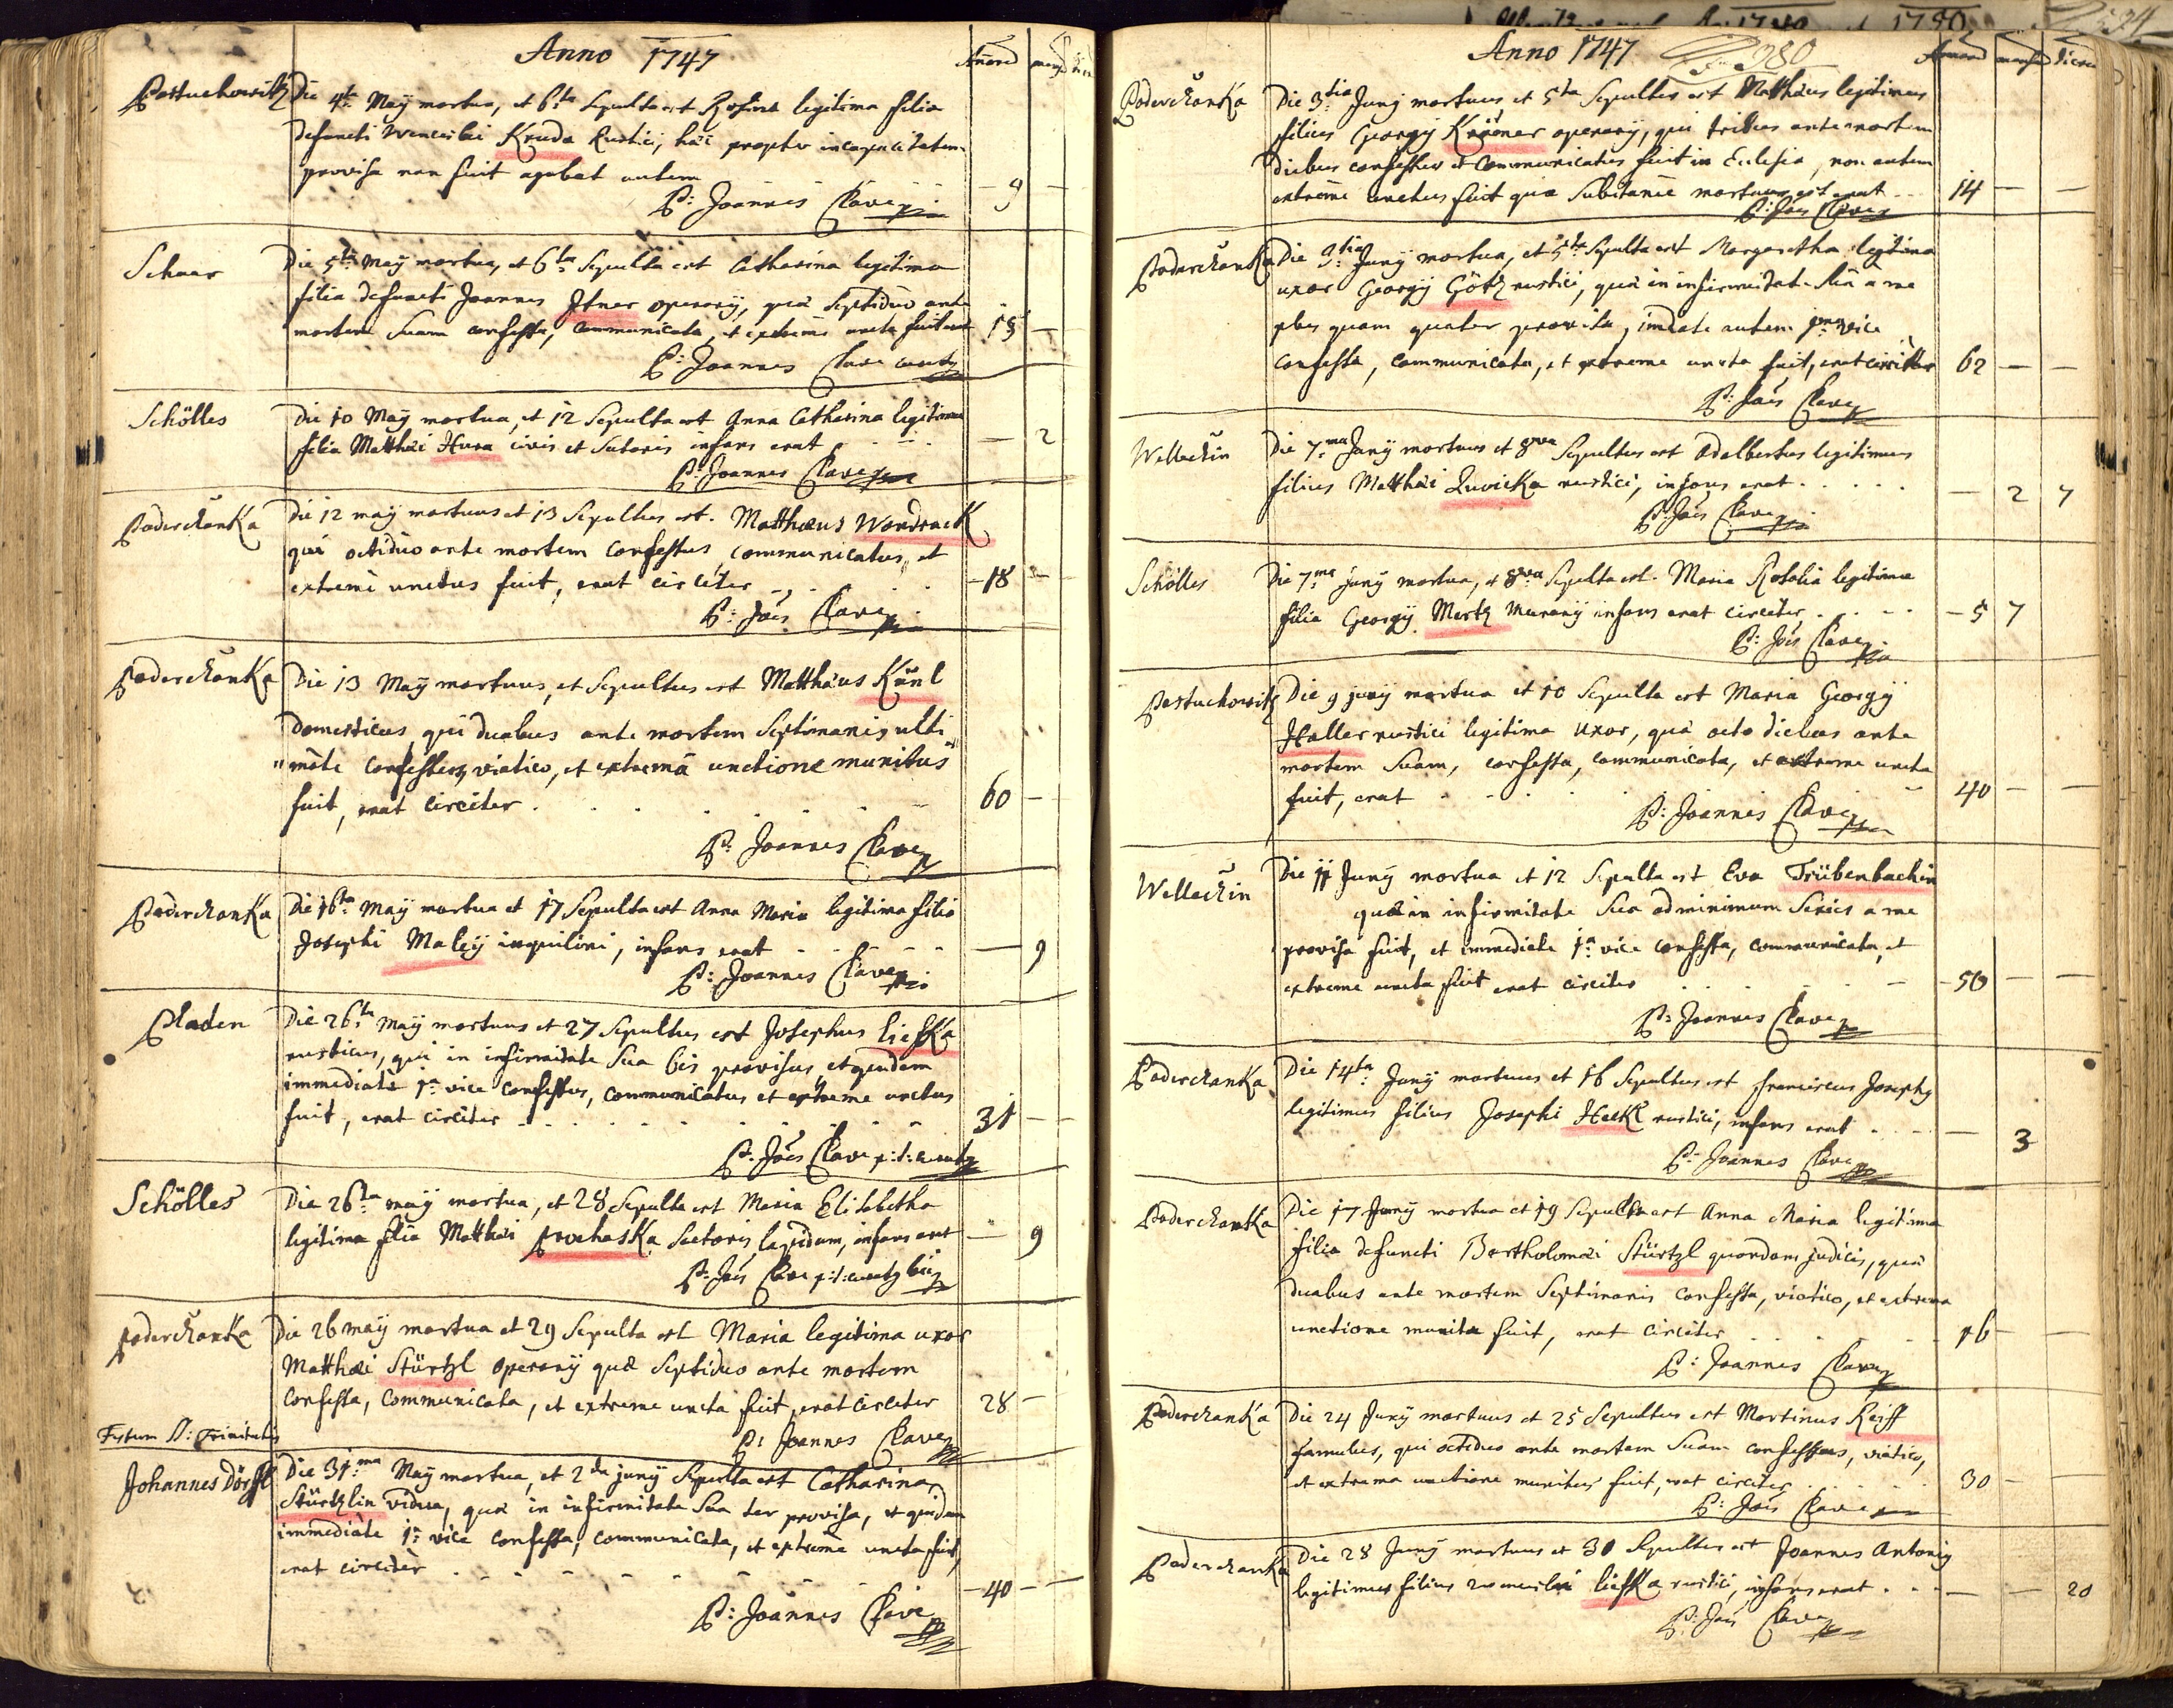 Anno 1747
Annorū mensiū dierū
Pastuchowitz
Die 4ta Maÿ mortua, et 6ta Sepulta est Rosina legitima filia
defuncti Wenceslai Kruda Rustici, hæc propter incapacitatem
provisa non fuit agebat autem
9
P: Joannes Clave
Schaar
Die 5ta Maÿ mortua, et 6ta Sepulta est Catharina legitima
filia defuncti Joannis Itner operarÿ, quæ Septiduo ante
mortem Suam confessa, communicata, et extreme uncta fuit
15
P: Joannes Clave
Schölles
Die 10 Maÿ mortua, et 12 Sepulta est Anna Catharina legitima
filia Matthæi Hura civis et Sutoris infans erat
2
P: Joannes Clave
PoderZanKa
Die 12 maÿ mortuus et 13 Sepultus est Matthæus WondracK
qui octiduo ante mortem confessus, communicatus, et
extremè unctus fuit, erat circiter
18
P: Joës Clave
PoderZanKa
Die 13 Maÿ mortuus, et Sepultus est Matthæus Känl
domesticus, qui duabus ante mortem Septimanis ulti
mate confessus, viatico, et extremâ unctione munitus
fuit, erat circiter
60
P: Joannes Clave
PoderZanKa
Die 16ta Maÿ mortua et 17 Sepulta est Anna Maria legitima filia
Josephi Maleÿ inquilini, infans erat
9
P: Joannes Clave
Pladen
Die 26ta Maÿ mortuus et 27 Sepultus est Josephus liefKa
rusticus, qui in infirmitate Sua bis provisus, et quidem
immediatè 1a vice confessus, communicatus et extreme unctus
fuit, erat circiter
31
P: Joës Clave p:t:
Schölles
Die 26ta maÿ mortua, et 28 Sepulta est Maria Elisabetha
legitima filia Matthæi prochasKa Sectoris lapidum, infans erat
9
P: Joës Clave p:t:
PoderZanKa
Die 26 maÿ mortua et 29 Sepulta est Maria legitima uxor
Matthæi Stürtzl operarÿ quæ Septiduo ante mortem
confessa, communicata, et extreme uncta fuit, erat circiter
28
P: Joannes Clave
Festum S: Trinitatis
Johannes Dörffl
Die 31ma Maÿ mortua, et 2da junÿ Sepulta est Catharina
Stürtzlin vidua, quæ in infirmitate Sua ter provisa, et quidem
immediate 1a vice confessa, communicata, et extremè uncta fuit,
erat circiter
40
P: Joannes Clave
Anno 1747
380
Annorū mensiū dierū
PoderZanKa
Die 3tia Junÿ mortuus et 5ta Sepultus est Matthæus legitimus
filius Georgÿ Krämer operarÿ, qui tribus ante mortem
diebus confessus et communicatus fuit in Ecclesia, non autem
extremè unctus fuit quia Subitanee mortuus est erat
14
P: Joës Clave
PoderZanKa
Die 3tia Junÿ mortua, et 5ta Sepulta est Margaretha legitima
uxor Georgÿ Götz rustici, quæ in infirmitate Sua a me
plus quam quater provisa, imediate autem 1ma vice
confessa, communicata, et extreme uncta fuit, erat circiter
62
P: Joës Clave
WelleZin
Die 7ma Junÿ mortuus et 8va Sepultus est Adalbertus legitimus
filius Matthæi LuvicKa rustici, infans erat
2 7
P: Joës Clave
Schölles
Die 7ma junÿ mortua, et 8va Sepulta est Maria Rosalia legitima
filia Georgÿ Mertz murarÿ infans erat circiter
5 7
P: Joës Clave
Pastuchowitz
Die 9 junÿ mortua et 10 Sepulta est Maria Georgÿ
Haller rustici legitima uxor, quæ octo diebus ante
mortem Suam, confessa, communicata, et extreme uncta
fuit, erat
40
P: Joannes Clave
WelleZin
Die 11 Junÿ mortua et 12 Sepulta est Eva Trübenbachin
quæ in infirmitate Sua ad minimum Sexies a me
provisa fuit, et immediate 1a vice confessa, communicata, et
extreme uncta fuit erat circiter
50
P: Joannes Clave
PoderZanKa
Die 14ta Junÿ mortuus et 16 Sepultus est Franciscus Josephy
legitimus filius Josephi HeckL rustici, infans erat
3
P: Joannes Clave
PoderZanKa
Die 17 Junÿ mortua et 19 Sepulta est Anna Maria legitima
filia defuncti Bartholomæi Stürtzl quondam judicis, quæ
duabus ante mortem Septimanis confessa, viatico, et extrema
unctione munita fuit, erat circiter
16
P: Joannes Clave
PoderZanKa
Die 24 Junÿ mortuus et 25 Sepultus est Martinus Reiff
famulus, qui octiduo ante mortem Suam confessus, viatico,
et extrema unctione munitus fuit, erat circiter
30
P: Joës Clave
PoderZanKa
Die 28 Junÿ mortuus et 30 Sepultus est Joannes Antoniy
legitimus filius Wenceslai liefKa rustici, infans erat
20
P: Joës Clave